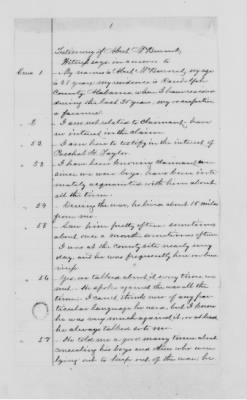 1
Testimony of Abel W. Bennet,
Witness says in answer to
Ques 1 My name is Abel W Bennet, my age
is 58 years my residence is Randolph
County Alabama where I have resided
during the last 35 years, my occupation
a farmer.
2 I am not related to claimant, have
no interest in the claim
52 I am here to testify in the interest of
H. Taylor
53 I have been knowing claimant ever
since we were boys, have been inti-
mately acquainted with him about
all the time.
54 During the war, he lived about 15 miles
from me.
55 Saw him pretty often sometimes
about once a month sometimes oftener
I was at the county site nearly every
day, and he was frequently here on bus-
56 Yes, we talked about it every time we
met. He spoke against the war all the
time. I can't think now of any par-
ticular language he used, but I know
he was very much against it, or at least
he always talked so to me.
57 He told me a good many times about
concealing his boys and others who were
lying out to keep out of the war, he